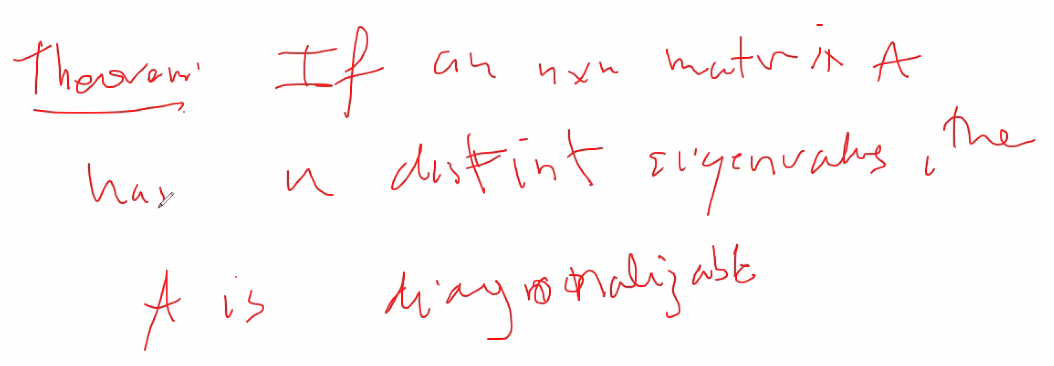 Theorem: If an nxn matrix A
has n distint eigenvalues, the
A is diagonalizable